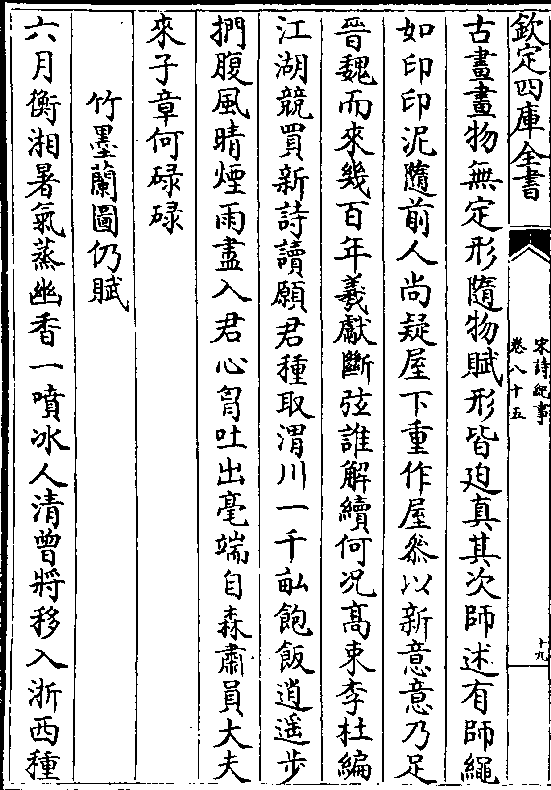 欽定四庫全書
宋詩紀事
卷八十五
十九
古畫畫物無定形隨物賦形皆迫真其次師述有師繩
如印印泥隨前人尚疑屋下重作屋㕘以新意意乃足
晉魏而來幾百年羲獻斷弦誰解續何况髙束李杜編
江湖競買新詩讀願君種取渭川一千畝飽飯逍遥步
捫腹風晴煙雨盡入君心胷吐出毫端自森肅員大夫
來子章何碌碌
竹墨蘭圖仍賦
六月衡湘暑氣蒸幽香一噴冰人清曽將移入浙西種